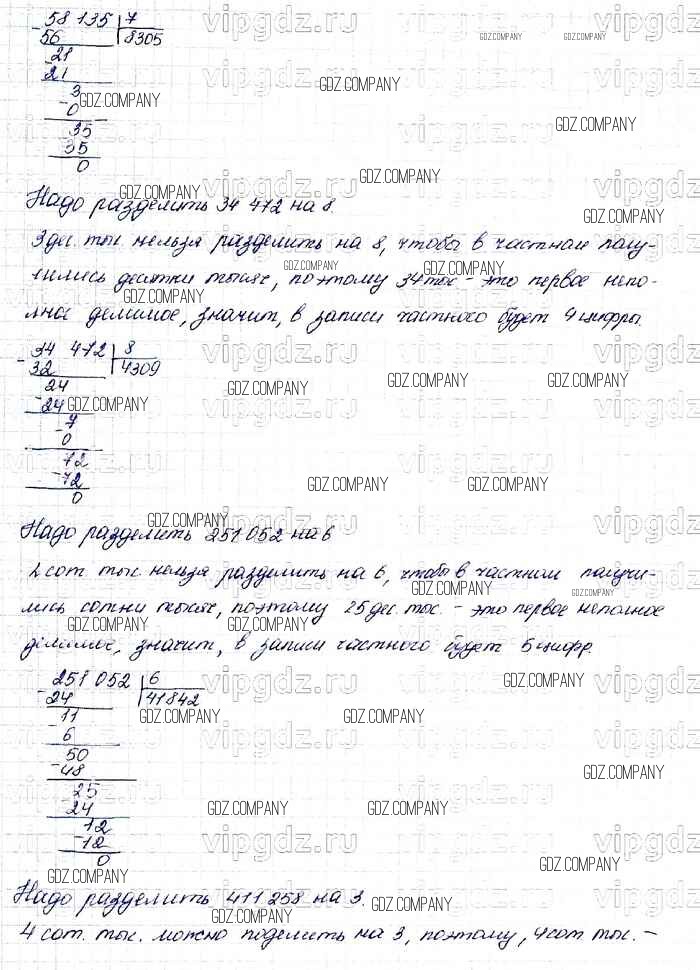 58 135 7
56 8305
21
21
3
0
35
35
0
Надо разделить 34 472 на 8.
3 дес. тыс. нельзя разделить на 8, чтобы в частном полу-
чились десятки тысяч, поэтому 34 тыс - это первое непо-
лное делимое, значит, в записи частного будет 4 цифры.
34 472 8
32 4309
24
24
7
0
72
72
0
Надо разделить 251 052 на 6
2 сот. тыс. нельзя разделить на 6, чтобы в частном получи-
лись сотни тысяч, поэтому 25 дес. тыс. - это первое неполное
делимое, значит, в записи частного будет 5 цифр.
251 052 6
24 41842
11
6
50
48
25
24
12
12
0
Надо разделить 411 258 на 3.
4 сот. тыс. можно поделить на 3, поэтому, 4 сот. тыс. -
vipgdz.ru
GDZ.COMPANY